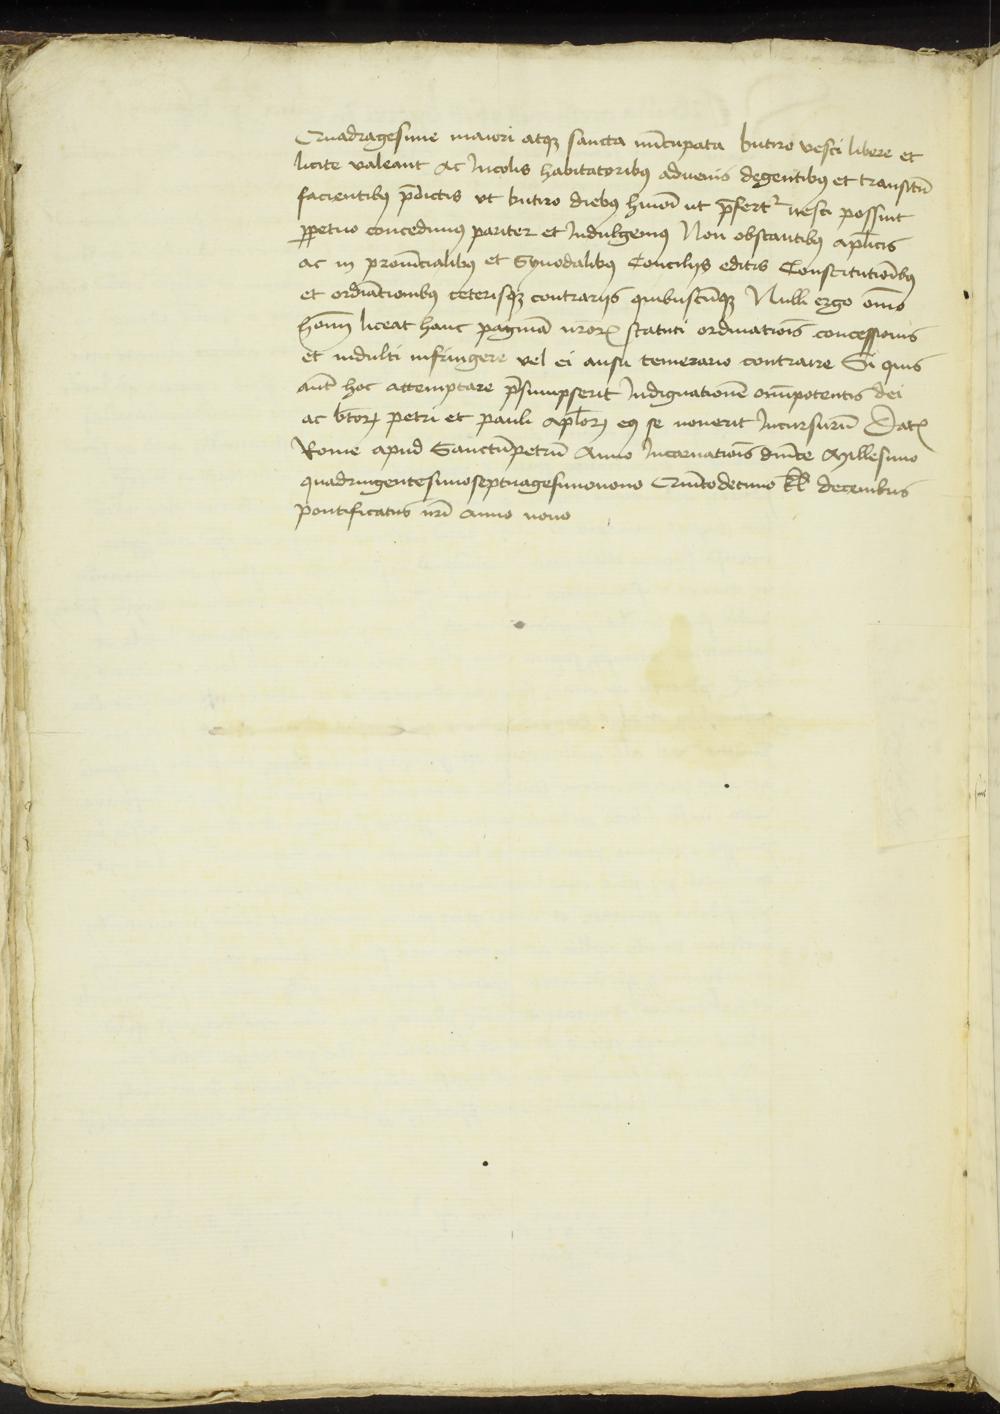 Quadragesime maiori atqꝫ sancta nūcupata butiro vesci libere et
licite valeant Ac Incolis habitatoribꝰ aduenis degentibꝰ et transitū
facientibꝰ p̄dictis vt butiro diebꝰ hmōi ut p̄fertᷣ uesci possint
ꝑpetuo concedimꝰ pariter et Indulgemꝰ Non obstantibꝰ aplīcis
ac in prouīcialibꝰ et Synodalibꝰ Concilijs editis Constitutiōibꝰ
et ordiātionibꝰ ceterisqꝫ contrarijs quibuscūqꝫ Nulli ergo om̄o
hom̄ liceat hanc paginā nr̄oꝝ statuti ordinatiōis concessionis
et indulti infringere vel ei ausu temerario contraire Si quis
aut̄ hoc attemptare p̄sumpserit Indignationē om̄ipotentis dei
ac btōꝝ petri et pauli aplōꝝ eiꝰ se nouerit Incursurū Datꝭ
Rome apud Sanctūpetrū Anno Incarnatiōis dn̄ice Millesimo
quadringentesimoseptuagesimonono Quītodecimo kl̄ decembris
pontificatus nr̄i Anno nono